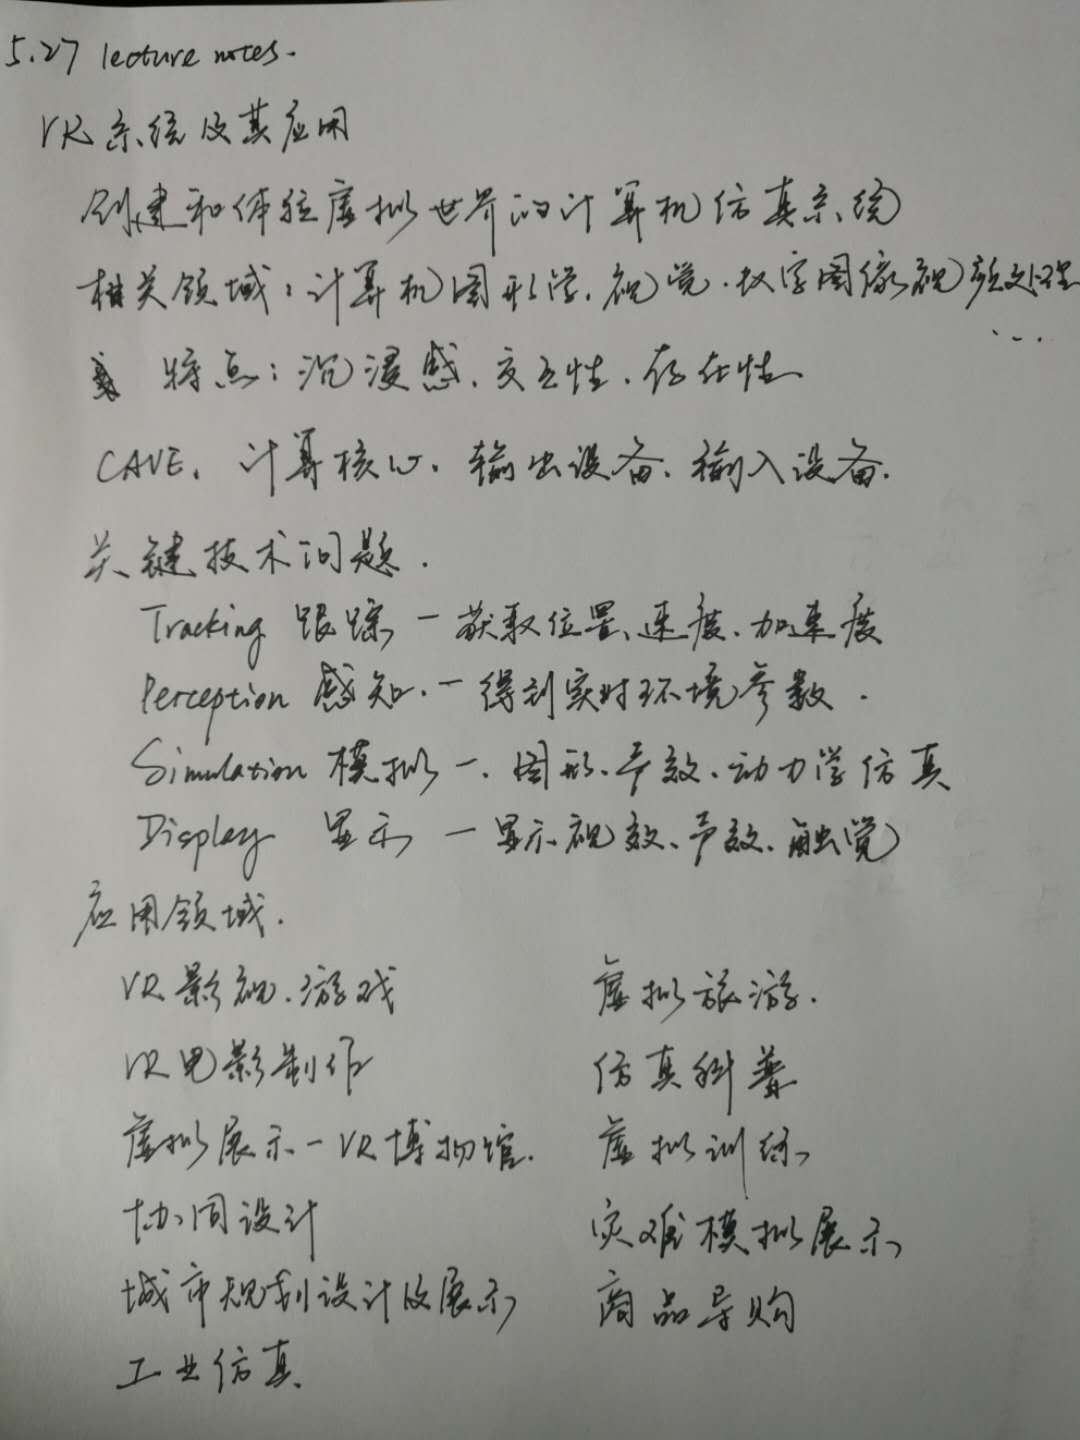 5.27 lecture notes.
VR系统及其应用
创建和体验虚拟世界的计算机仿真系统
相关领域：计算机图形学、视觉、数字图像视频处理
...
特点：沉浸感、交互性、存在性
CAVE、计算核心、输出设备、输入设备.
关键技术问题.
Tracking 跟踪 — 获取位置、速度、加速度
Perception 感知 — 得到实时环境参数.
Simulation 模拟 — 图形、声效、动力学仿真
Display 显示 — 显示视效、声效、触觉
应用领域.
VR影视、游戏 虚拟旅游.
VR电影制作 仿真科普
虚拟展示 — VR博物馆. 虚拟训练
协同设计 灾难模拟展示
城市规划设计及展示 商品导购
工业仿真